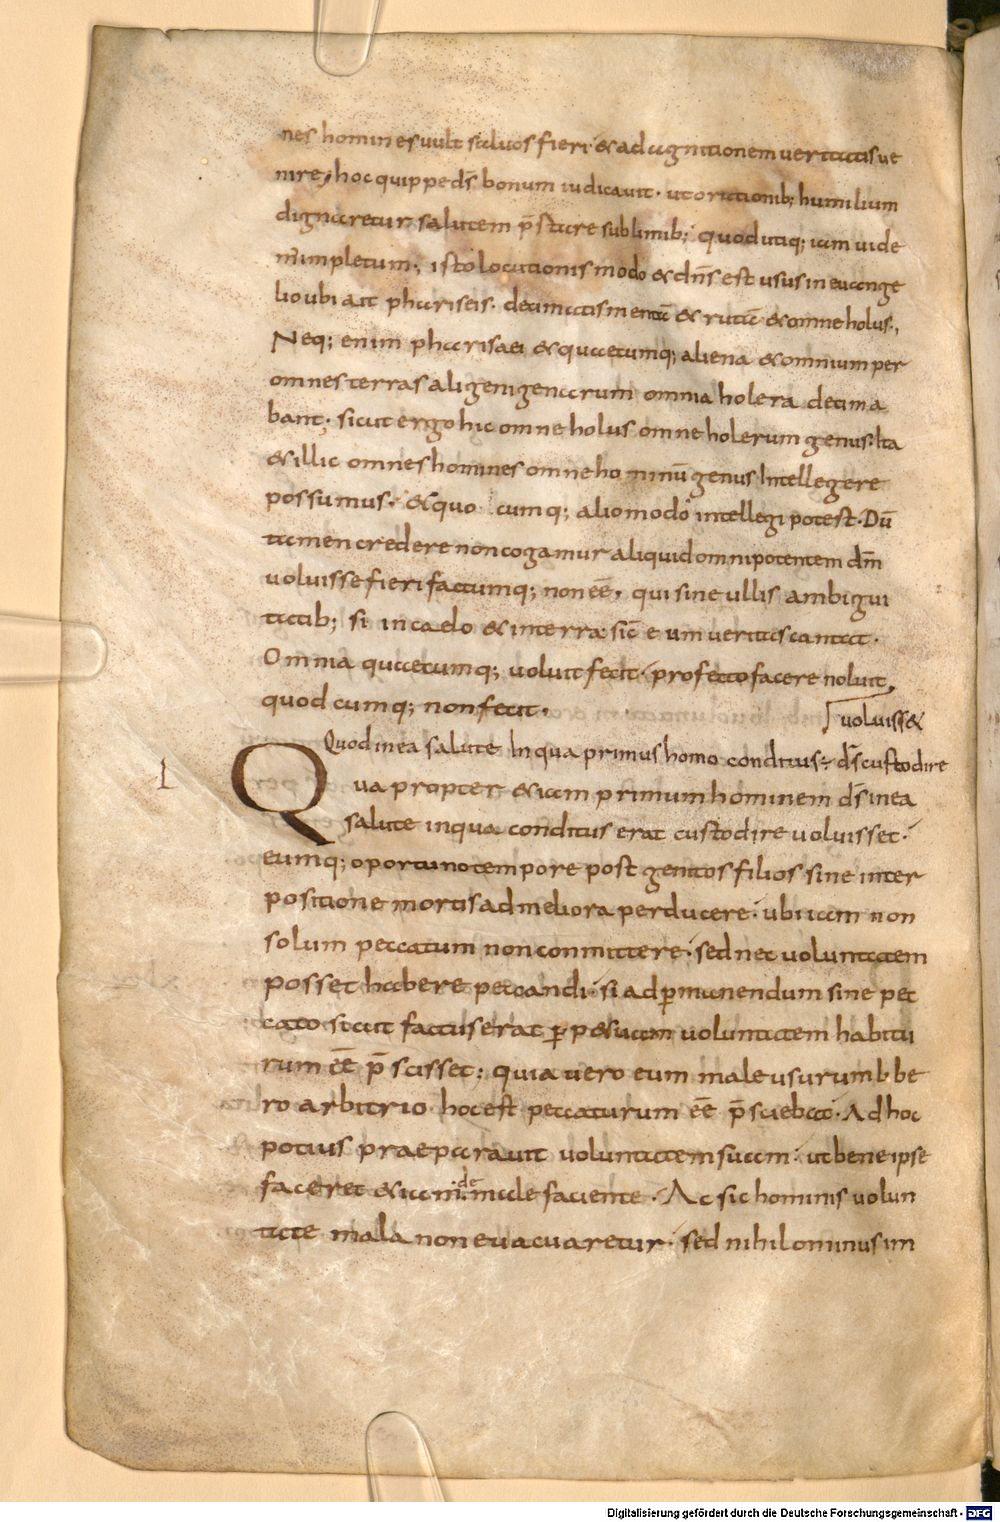 nes homines uult saluos fieri · & ad agnitionem ueritatis ue
nire, hoc quippe d̄s bonum iudicauit · ut orationib; humilium
dignaretur salutem p̄stare sublimib; quod utiq; iam uide
m' impletum;, isto locutionis modo & dn̄s est usus in euange
lio ubi ait phariseis · decimatis mentā & rutā & omne holus.,
Neq; enim pharisaei & quaecumq; aliena & omnium per
omnes terras aligenigenarum omnia holera decima
bant; sicut ergo hic omne holus omne holerum genus · Ita
& illic omnes homines omne hominū genus Intellegere
possumus · & quo cumq; alio modo intellegi potest · Dū
tamen credere non cogamur aliquid omnipotentem dm̄
uoluisse fieri factumq; non eē, qui sine ullis ambigui
tatib; si in caelo & in terra sic̄ eum ueritas cantat ·
Omnia quaecumq; uoluit fecit · profecto facere noluit,
quod cumq; non fecit,
uoluiss&
Quod in ea salute In qua primus homo conditus · d̄s custodire
I
Qua propter & iam primum hominem d̄s in ea
salute in qua conditus erat custodire uoluisset ·
eumq; oportuno tempore post genitos filios sine inter
positione mortis ad meliora perducere · ubi iam non
solum peccatum non conmittere · sed nec uoluntatem
posset habere peccandi · si ad p̄manendum sine pec
cato sicut factus erat p̄p&uam uoluntatem habitu
rum eē p̄scisset: quia uero eum male usurum libe
ro arbitrio hoc est peccaturum eē p̄sciebat · Ad hoc
potius praeparauit uoluntatem suam · ut bene ipse
faceret & iam de male faciente · Ac sic hominis uolun
tate mala non euacuaretur · sed nihilominus im
Digitalisierung gefördert durch die Deutsche Forschungsgemeinschaft - DFG